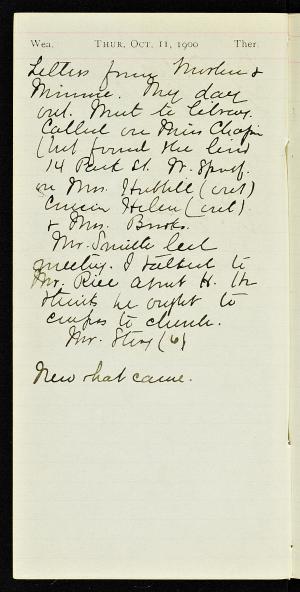 Wea. Thur. Oct. 11, 1900 Ther.
Letters from &
Minnie. My day
out. Went to library.
Called on Miss Chapin
(but found she lives
14 Park St. W. Spr'f.
on Mrs. Hubbell (out)
Cousin Helen (out)
& Mrs. Brooks.
Mr. Smith led
meeting. I talked to
Mr. Rice about H. He
thinks he ought to
confess to church.
Mr. (6)
New hat came.